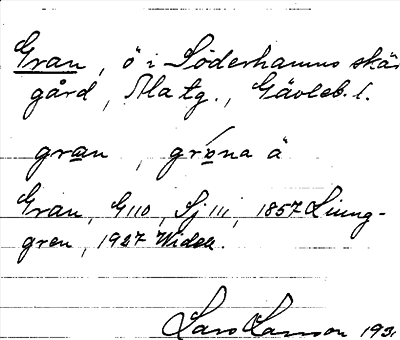 Gran, ö i Söderhamns skär
gård, Ala tg., Gävleb. l.
gran, gröna ä
Gran, G 110, Sj 111, 1857 Ljung-
gren, 1927 Widell.
Lars Larsson 193